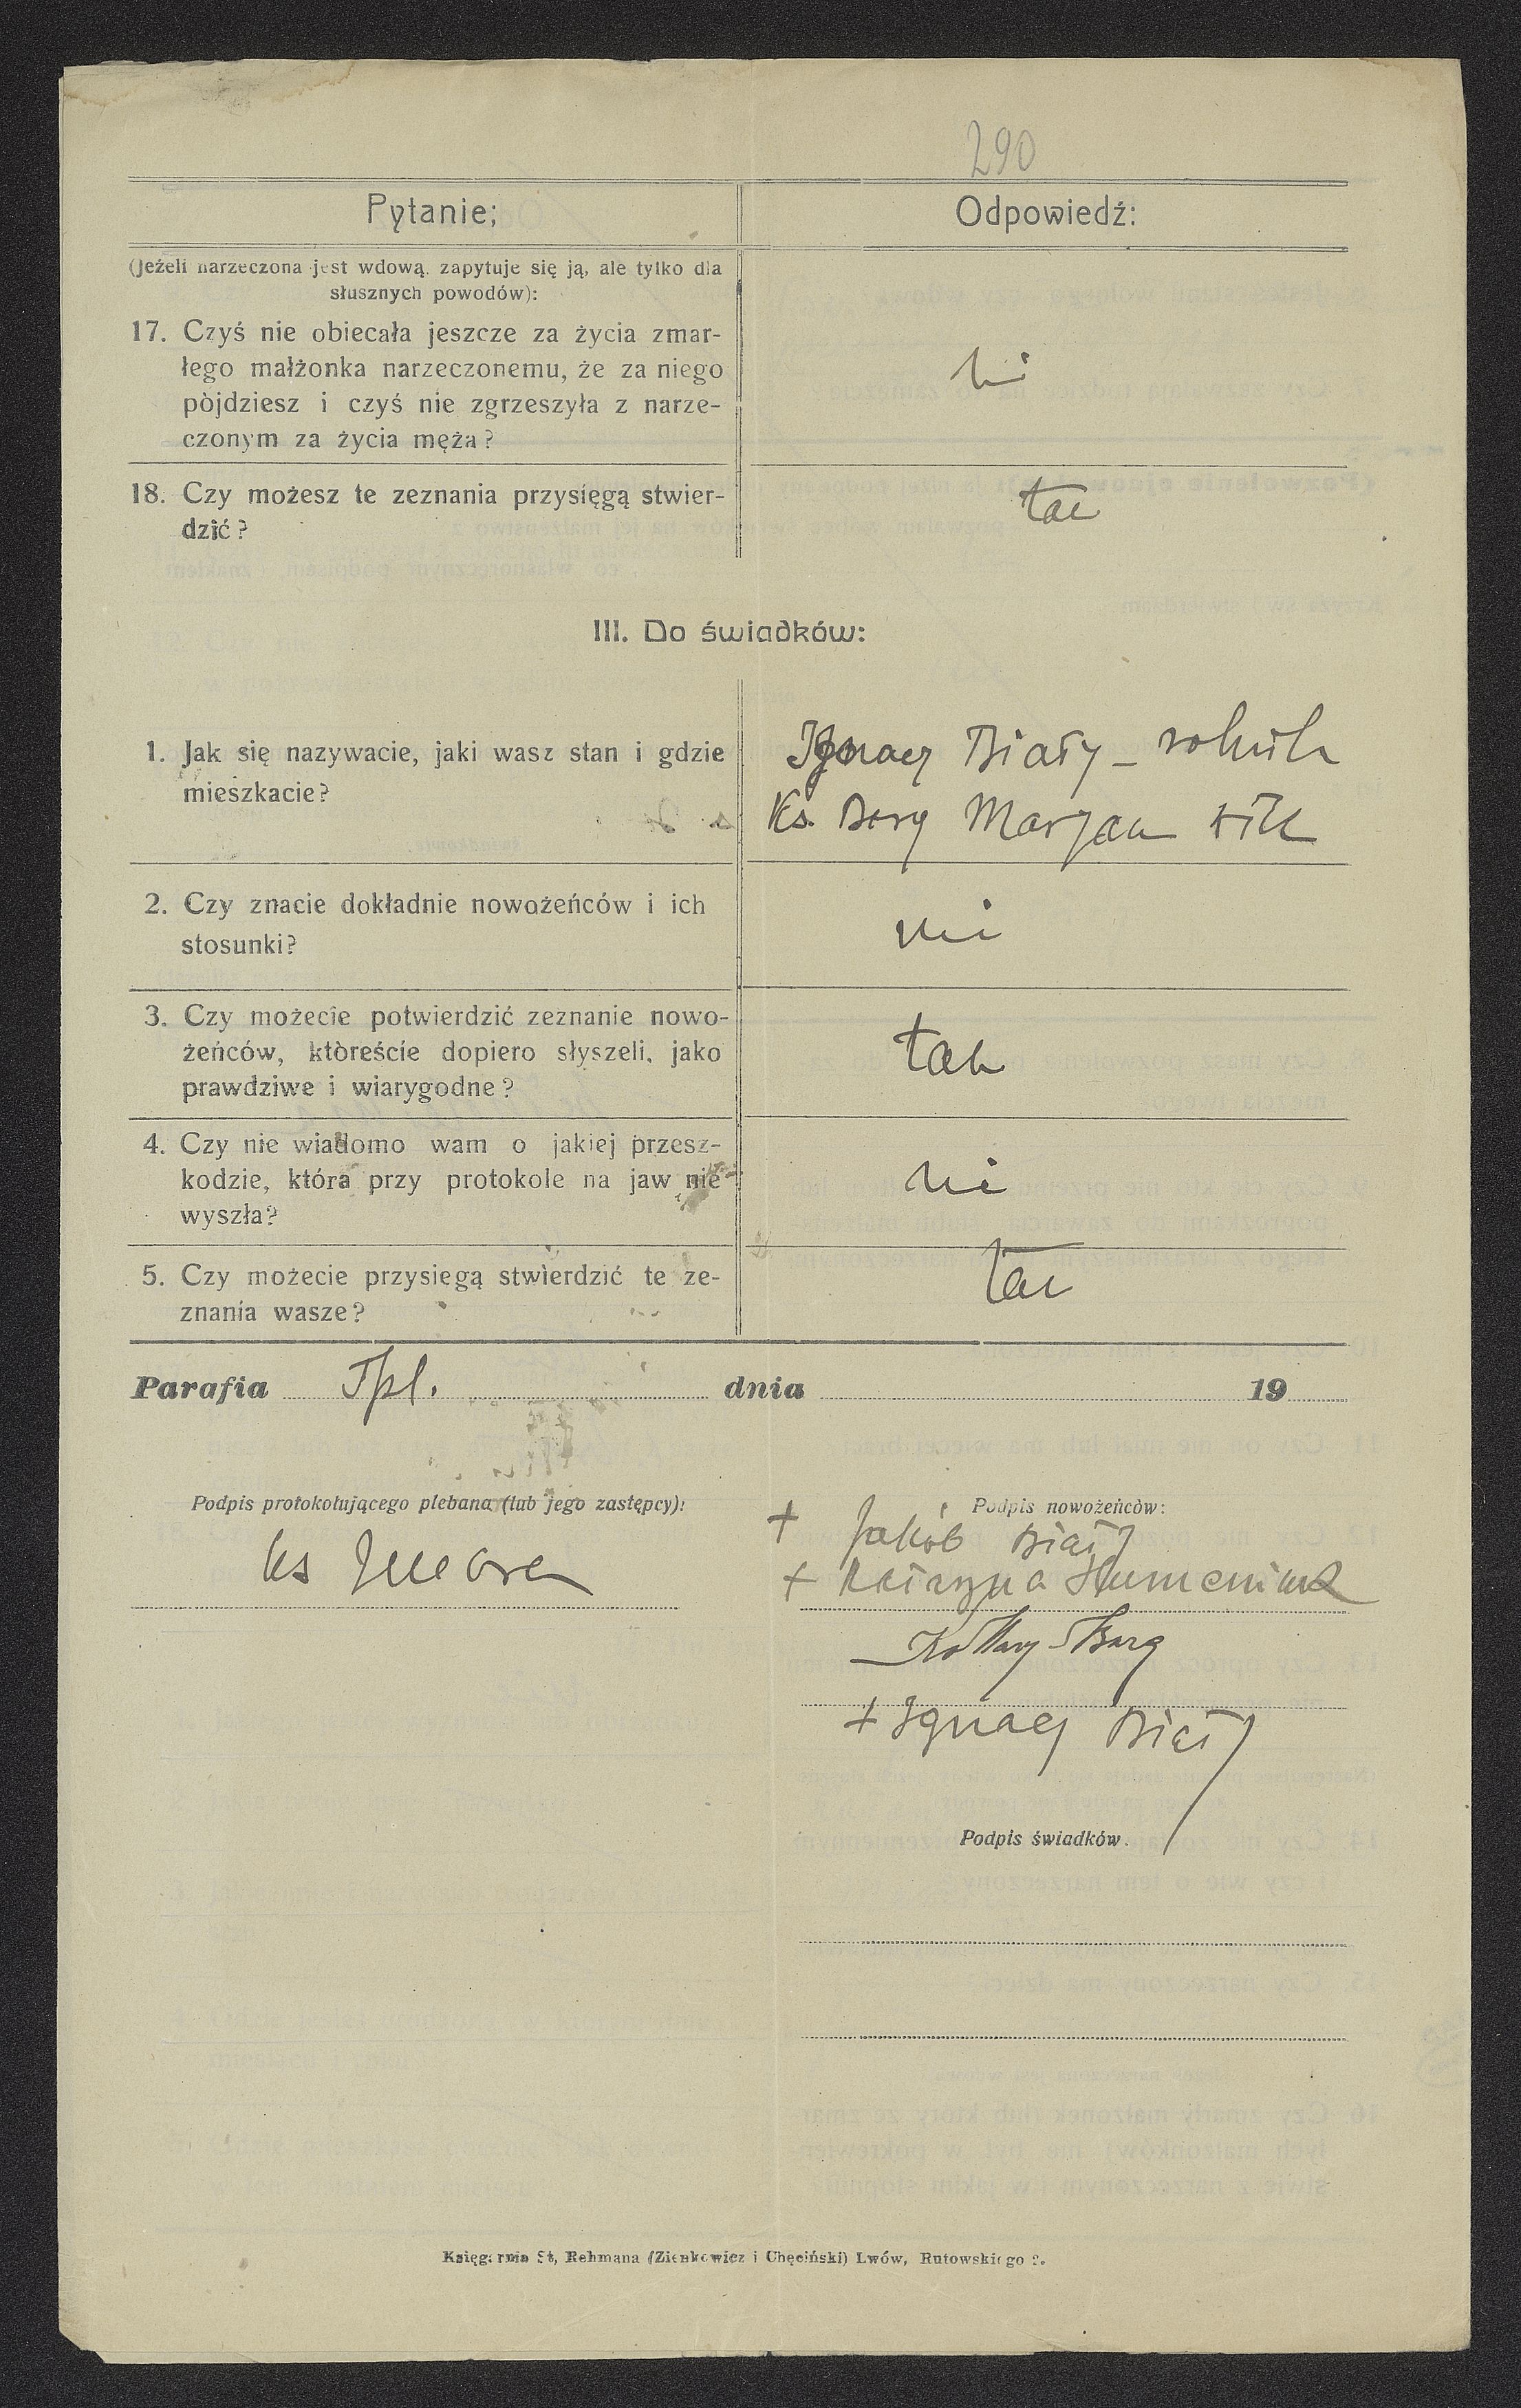 290
Pytanie; Odpowiedź:
(Jeżeli narzeczona jest wdową, zapytuje się ją, ale tylko dla
słusznych powodów):
17. Czyś nie obiecała jeszcze za życia zmar-
łego małżonka narzeczonemu, że za niego
pòjdziesz i czyś nie zgrzeszyła z narze-
czonym za życia męża?
ni
18. Czy możesz te zeznania przysięgą stwier-
dzić?
tak
III. Do świadków:
1. Jak się nazywacie, jaki wasz stan i gdzie
mieszkacie?
Ignacy Biały - rolnik
Ks. Berg Marjan
2. Czy znacie dokładnie nowożeńców i ich
stosunki?
ni
3. Czy możecie potwierdzić zeznanie nowo-
żeńców, któreście dopiero słyszeli, jako
prawdziwe i wiarygodne?
tak
4. Czy nie wiadomo wam o jakiej przesz-
kodzie, która przy protokole na jaw nie
wyszła?
ni
5. Czy możecie przysiegą stwierdzić te ze-
znania wasze?
tak
Parafia Tpl. dnia 19
Podpis protokołującego plebana (lub jego zastępcy):
Ks
Podpis nowożeńców:
+ Jakób Biały
+ Katarzyna Humeniuk
Berg
+ Ignacy Biały
Podpis świadków.
Księgarnia St, Rehmana (Zienkowicz i Chęciński) Lwów, Rutowskiego 2.